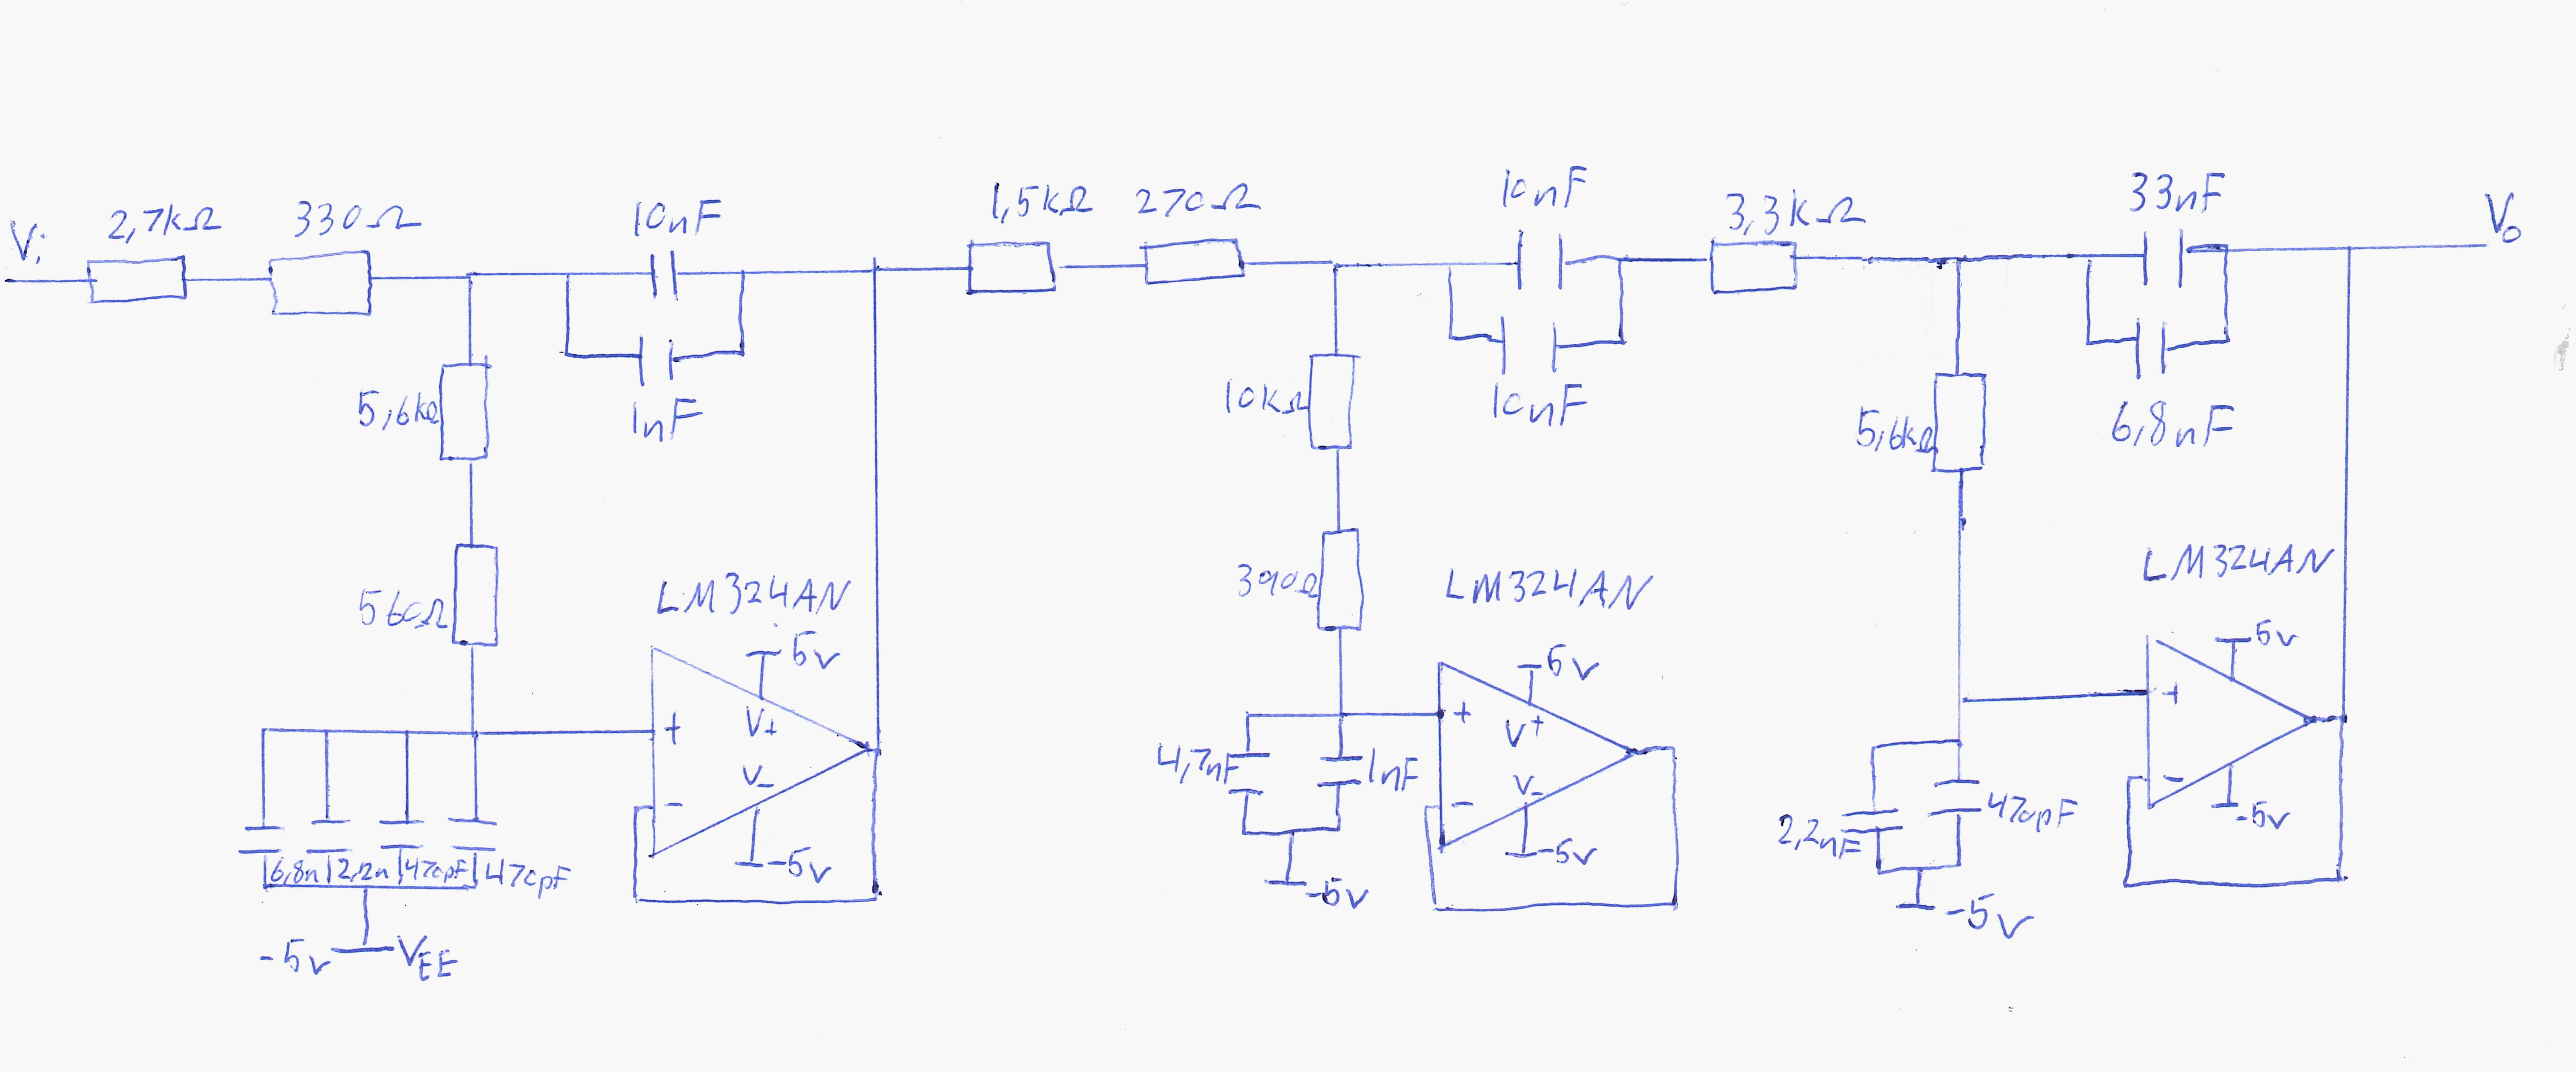 Vi
2,7kΩ
330Ω
10nF
1nF
5,6kΩ
560Ω
LM324AN
5v
+
V+
V-
-
-5v
6,8n
2,2n
470pF
470pF
-5v
VEE
1,5kΩ
270Ω
10nF
10nF
10kΩ
390Ω
LM324AN
5v
+
V+
V-
-
-5v
4,7nF
1nF
-5v
3,3kΩ
33nF
6,8nF
Vo
5,6kΩ
LM324AN
5v
+
-
-5v
2,2nF
470pF
-5v